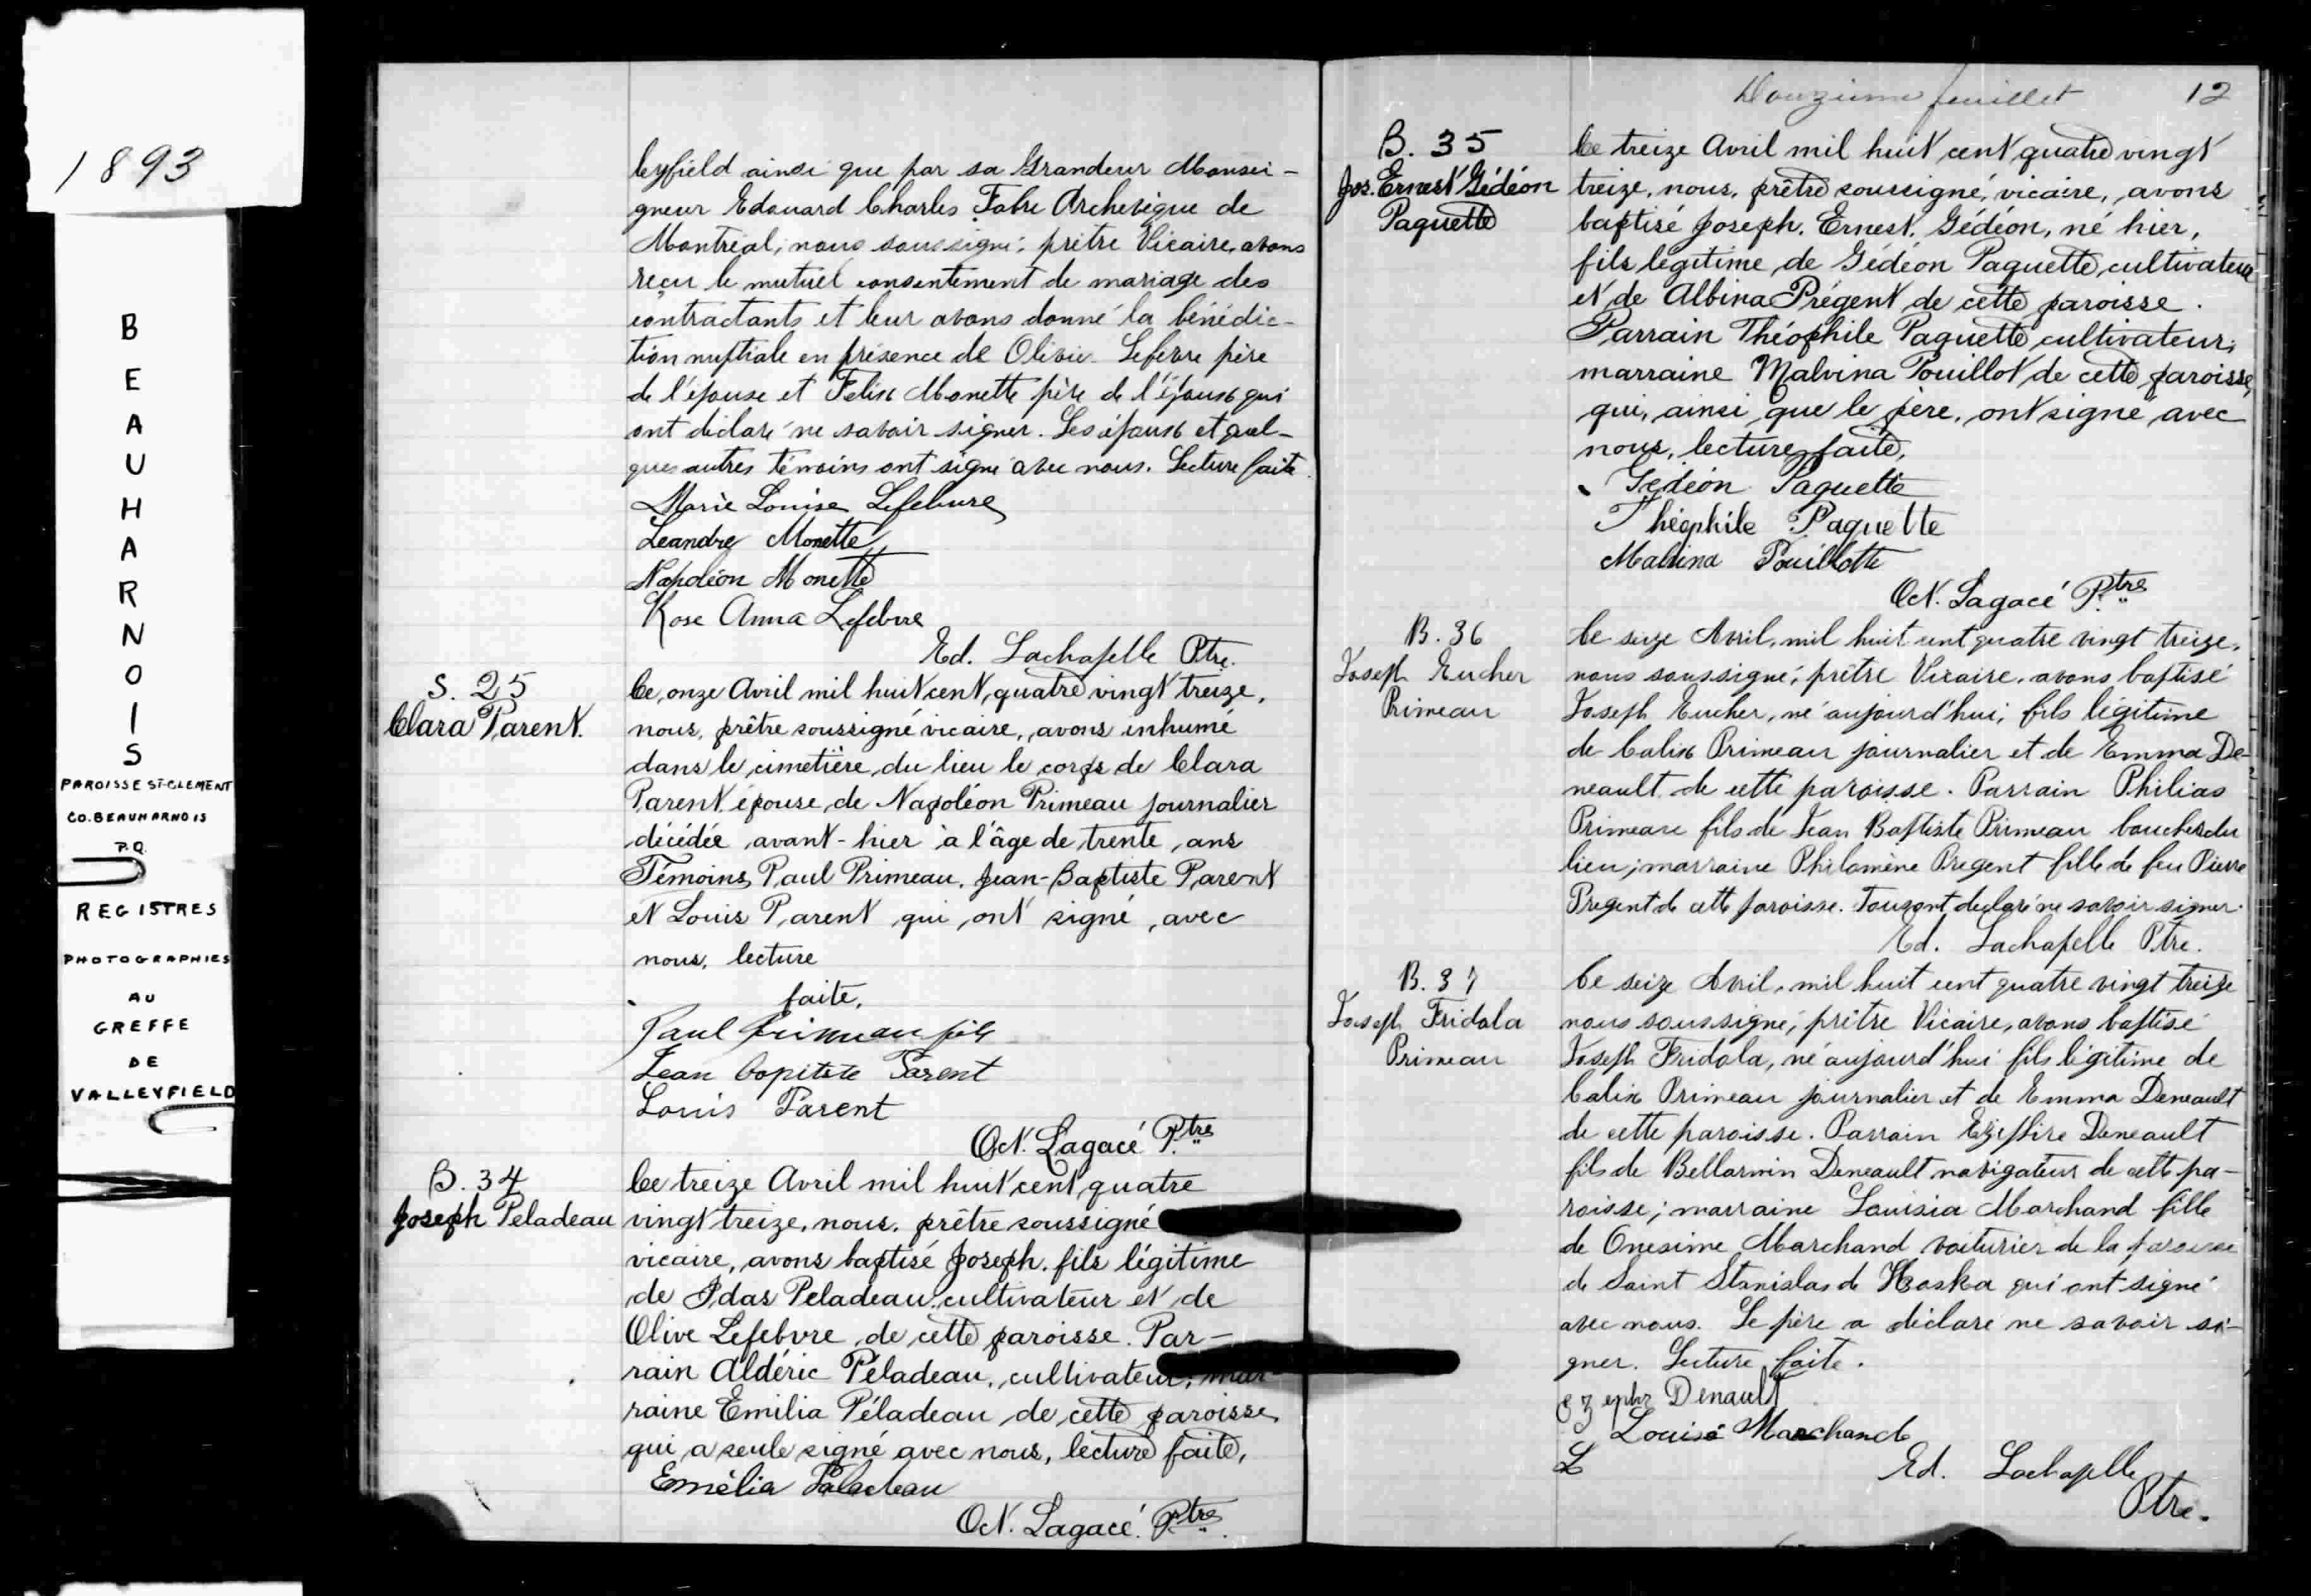 1893
BEAUHARNOIS
PAROISSE ST-CLEMENT
CO. BEAUHARNOIS
P.Q.
REGISTRES
PHOTOGRAPHIES
AU
GREFFE
DE
VALLEYFIELD
leyfield ainsi que par sa Grandeur Monsei-
gneur Edouard Charles Fabre Archevêque de
Montréal, nous soussigné, prêtre Vicaire, avons
reçu le mutuel consentement de mariage des
contractants et leur avons donné la bénédic-
tion nuptiale en présence de Olivier Lefebvre père
de l'épouse et Félix Monette père de l'époux qui
ont déclaré ne savoir signer. Les époux et quel-
ques autres témoins ont signé avec nous. Lecture faite.
Marie Louise Lefebvre
Leandre Monette
Napoléon Monette
Rose Anna Lefebvre
Ed. Lachapelle Ptre.
S. 25
Clara Parent.
Ce onze Avril mil huit cent quatre vingt treize,
nous, prêtre soussigné vicaire, avons inhumé
dans le cimetière du lieu le corps de Clara
Parent épouse de Napoléon Primeau journalier
décédée avant-hier à l'âge de trente ans
Témoins Paul Primeau, Jean-Baptiste Parent
et Louis Parent qui ont signé avec
nous, lecture
faite,
Paul Primeau fils
Jean Bapitste Parent
Louis Parent
Oct. Lagacé Ptre
B. 34
Joseph Peladeau
Ce treize Avril mil huit cent quatre
vingt treize, nous, prêtre soussigné
vicaire, avons baptisé Joseph, fils légitime
de Idas Peladeau, cultivateur et de
Olive Lefebvre de cette paroisse. Par-
rain Aldéric Péladeau, cultivateur, mar-
raine Emilia Péladeau de cette paroisse
qui a seule signé avec nous, lecture faite,
Emélia Paladeau
Oct. Lagacé. Ptre
Douzième feuillet 12
B. 35
Jos. Ernest Gédéon
Paquette
Ce treize Avril mil huit cent quatre vingt
treize, nous, prêtre soussigné, vicaire, avons
baptisé Joseph, Ernest, Gédéon, né hier,
fils légitime de Gédéon Paquette, cultivateur
et de Albina Prégent de cette paroisse.
Parrain Théophile Paquette cultivateur;
marraine Malvina Pouillot de cette paroisse,
qui, ainsi que le père, ont signé avec
nous, lecture faite,
Gédéon Paquette
Théophile Paquette
Malvina Pouillotte
Oct. Lagacé Ptre
B. 36
Joseph Eucher
Primeau
Ce seize Avril, mil huit cent quatre vingt treize,
nous soussigné, prêtre Vicaire, avons baptisé
Joseph Eucher, né aujourd'hui, fils légitime
de Calix Primeau journalier et de Emma De-
neault de cette paroisse. Parrain Philias
Primeau fils de Jean Baptiste Primeau boucher du
lieu; marraine Philomène Pregent fille de feu Pierre
Pregent de cette paroisse. Tous ont déclaré ne savoir signer.
Ed. Lachapelle Ptre.
B. 37
Joseph Fridola
Primeau
Ce seize Avril, mil huit cent quatre vingt treize
nous soussigné, prêtre Vicaire, avons baptisé
Joseph Fridola, né aujourd'hui fils légitime de
Calix Primeau journalier et de Emma Deneault
de cette paroisse. Parrain Ezephire Deneault
fils de Bellarmin Deneault navigateur de cette pa-
roisse; marraine Louisia Marchand fille
de Onesime Marchand voiturier de la paroisse
de Saint Stanislas de Koska qui ont signé
avec nous. Le père a déclaré ne savoir si-
gner. Lecture faite.
Denault
Louisé Marchand
L
Ed. Lachapelle
Ptre.